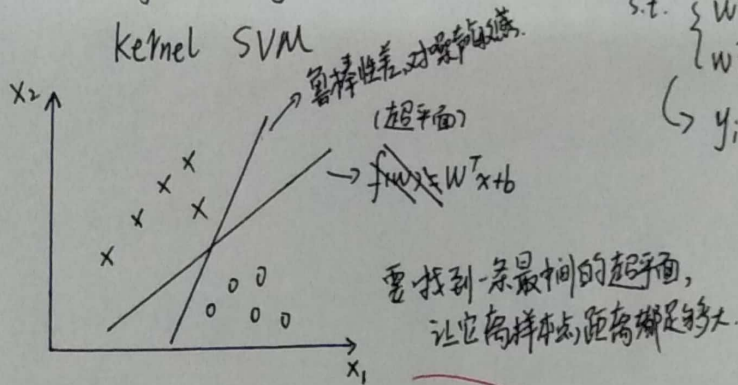 s.t. { w
w
kernel SVM
→ 鲁棒性差,对噪声敏感.
(超平面)
→ y_i
x₂
→ f(w)= Wᵀx+b
要找到一条最中间的超平面,
让它离样本点距离都足够大.
x₁